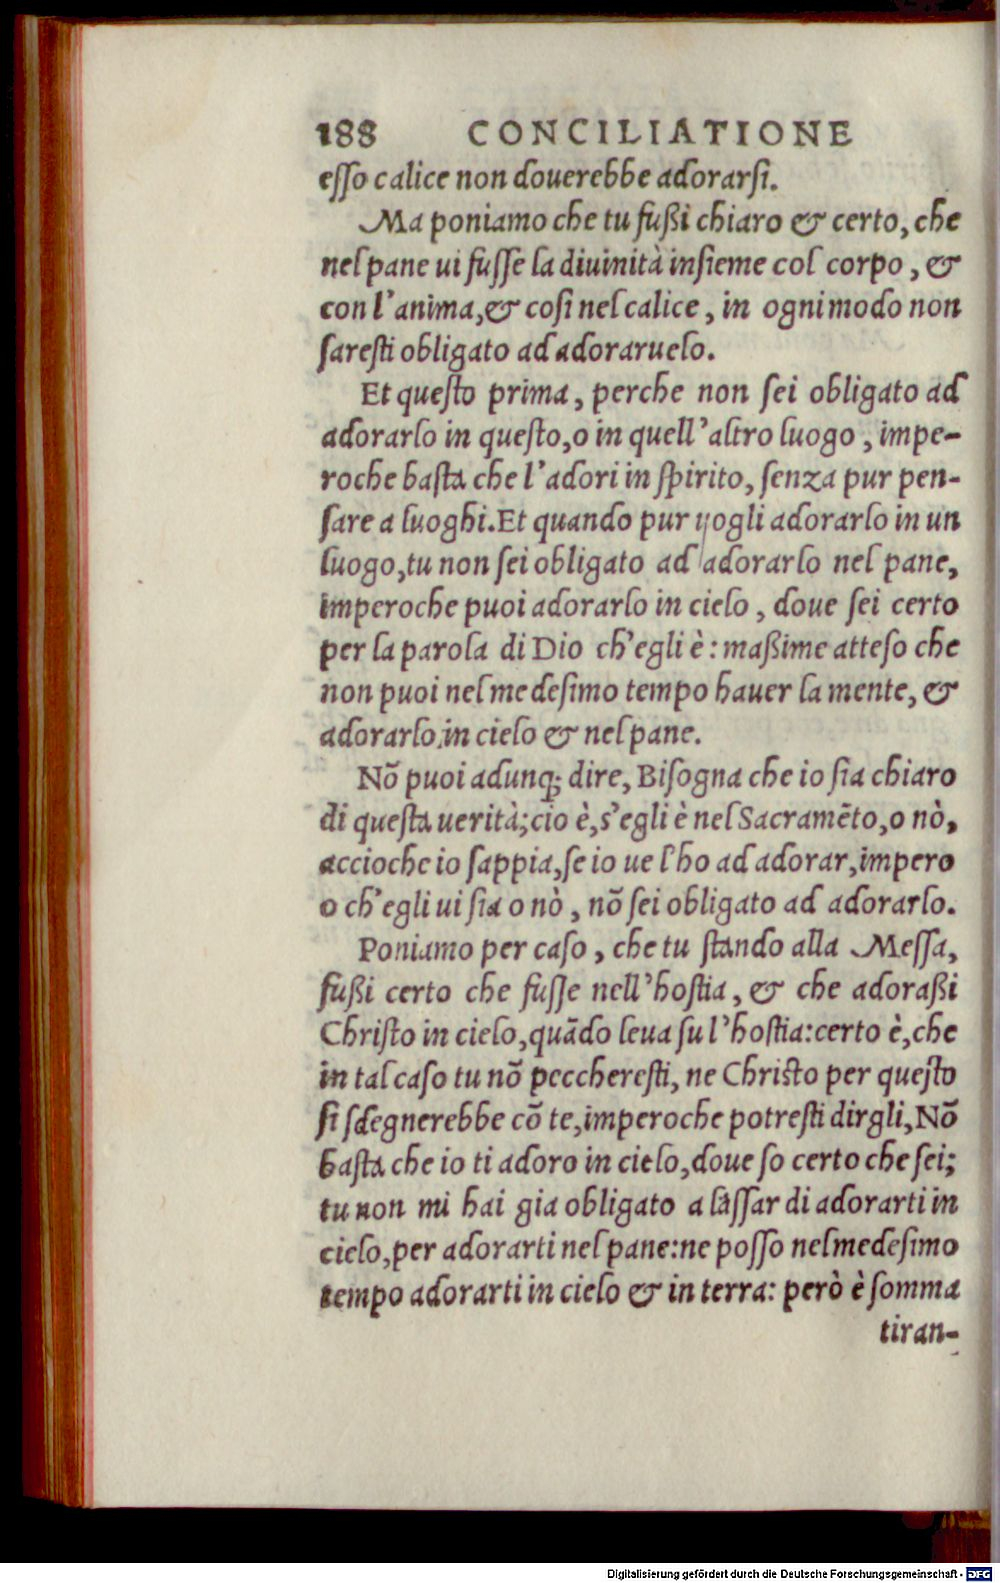 188 CONCILIATIONE
esso calice non douerebbe adorarsi.
Ma poniamo che tu fußi chiaro & certo, che
nel pane ui fusse la diuinità insieme col corpo, &
con l'anima, & cosi nel calice, in ogni modo non
saresti obligato ad adoraruelo.
Et questo prima, perche non sei obligato ad
adorarlo in questo, o in quell'altro luogo, impe-
roche basta che l'adori in spirito, senza pur pen-
sare a luoghi. Et quando pur uogli adorarlo in un
luogo, tu non sei obligato ad adorarlo nel pane,
imperoche puoi adorarlo in cielo, doue sei certo
per la parola di Dio ch'egli è: maßime atteso che
non puoi nel medesimo tempo hauer la mente, &
adorarlo in cielo & nel pane.
Nō puoi adunq; dire, Bisogna che io sia chiaro
di questa uerità; cio è, s'egli è nel Sacramēto, o nò,
accioche io sappia, se io ue l'ho ad adorar, impero
o ch'egli ui sia o nò, nō sei obligato ad adorarlo.
Poniamo per caso, che tu stando alla Messa,
fußi certo che fusse nell'hostia, & che adoraßi
Christo in cielo, quādo leua su l'hostia: certo è, che
in tal caso tu nō peccheresti, ne Christo per questo
si sdegnerebbe cō te, imperoche potresti dirgli, Nō
basta che io ti adoro in cielo, doue so certo che sei;
tu non mi hai gia obligato a lassar di adorarti in
cielo, per adorarti nel pane: ne posso nel medesimo
tempo adorarti in cielo & in terra: però è somma
tiran-
Digitalisierung gefördert durch die Deutsche Forschungsgemeinschaft - DFG